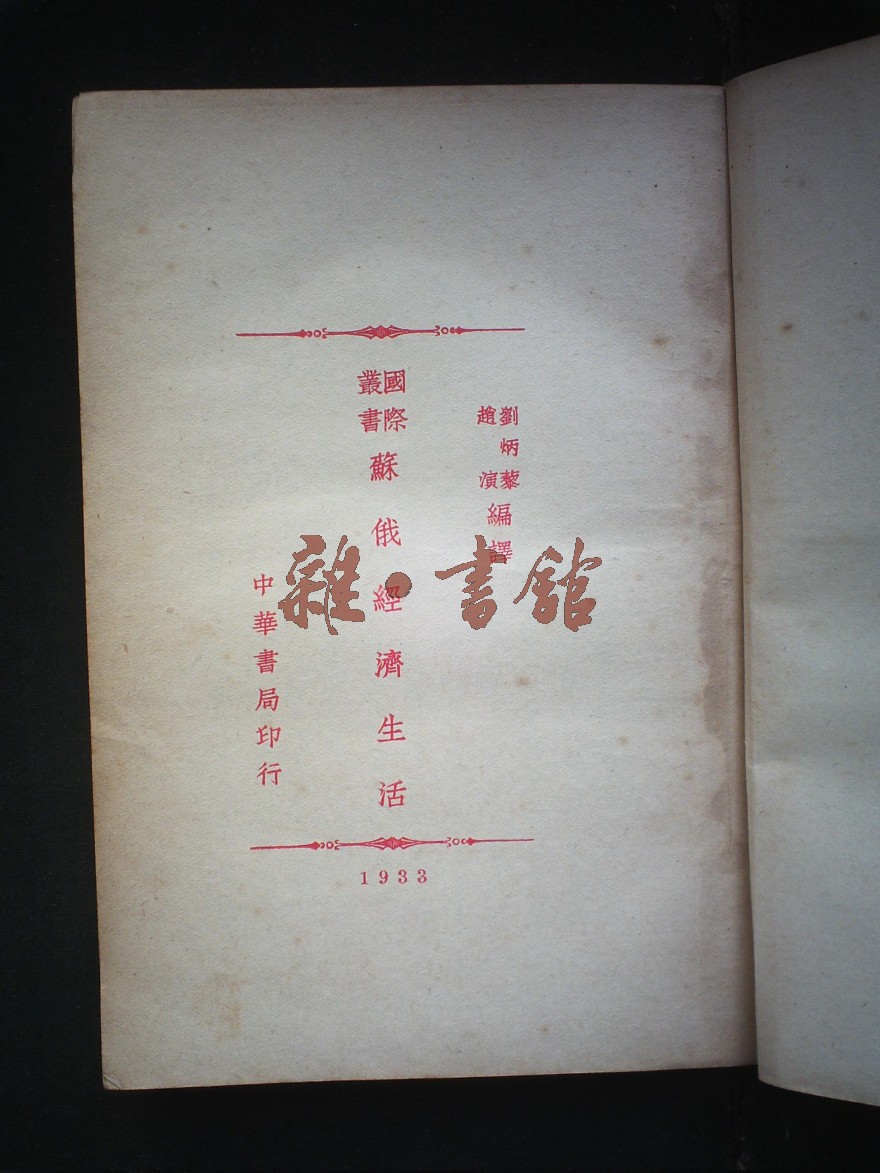 劉炳藜
趙演
編譯
國際
叢書
蘇俄經濟生活
中華書局印行
1933
雜·書館